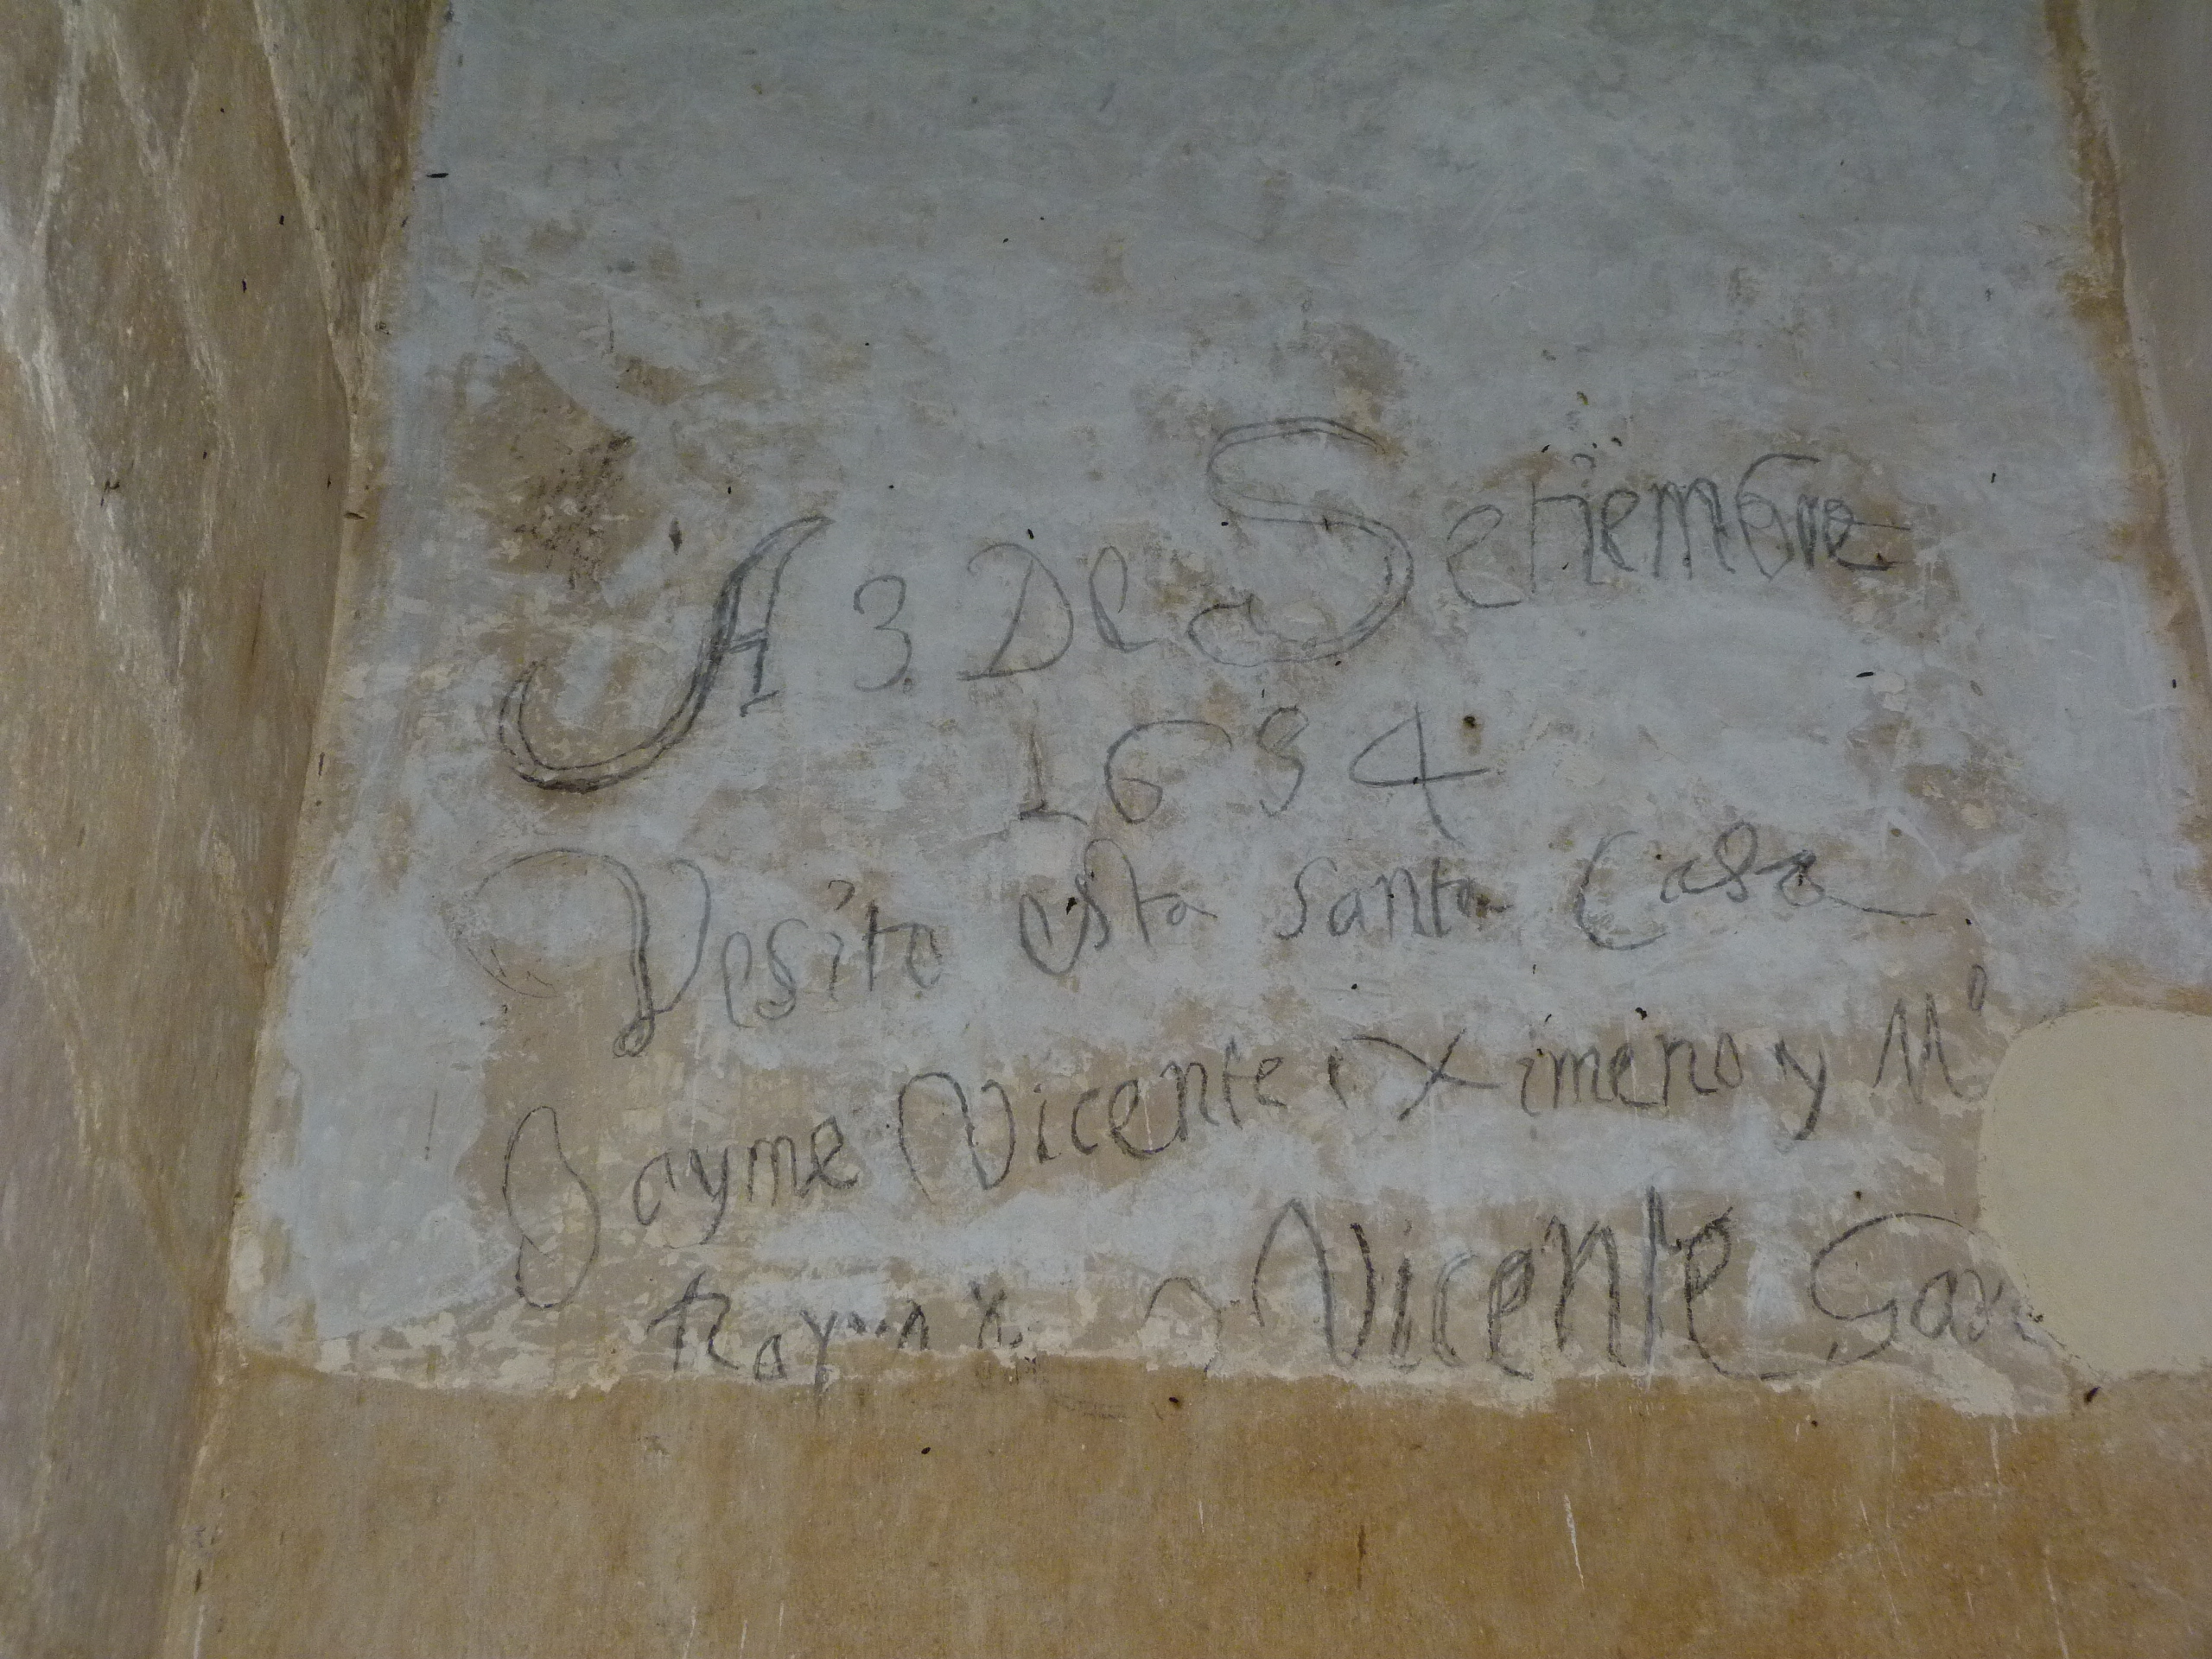 A 3 De Setiembre
1694
Vesito esta santa Casa
Jayme Vicente Ximeno y Mº
Vicente